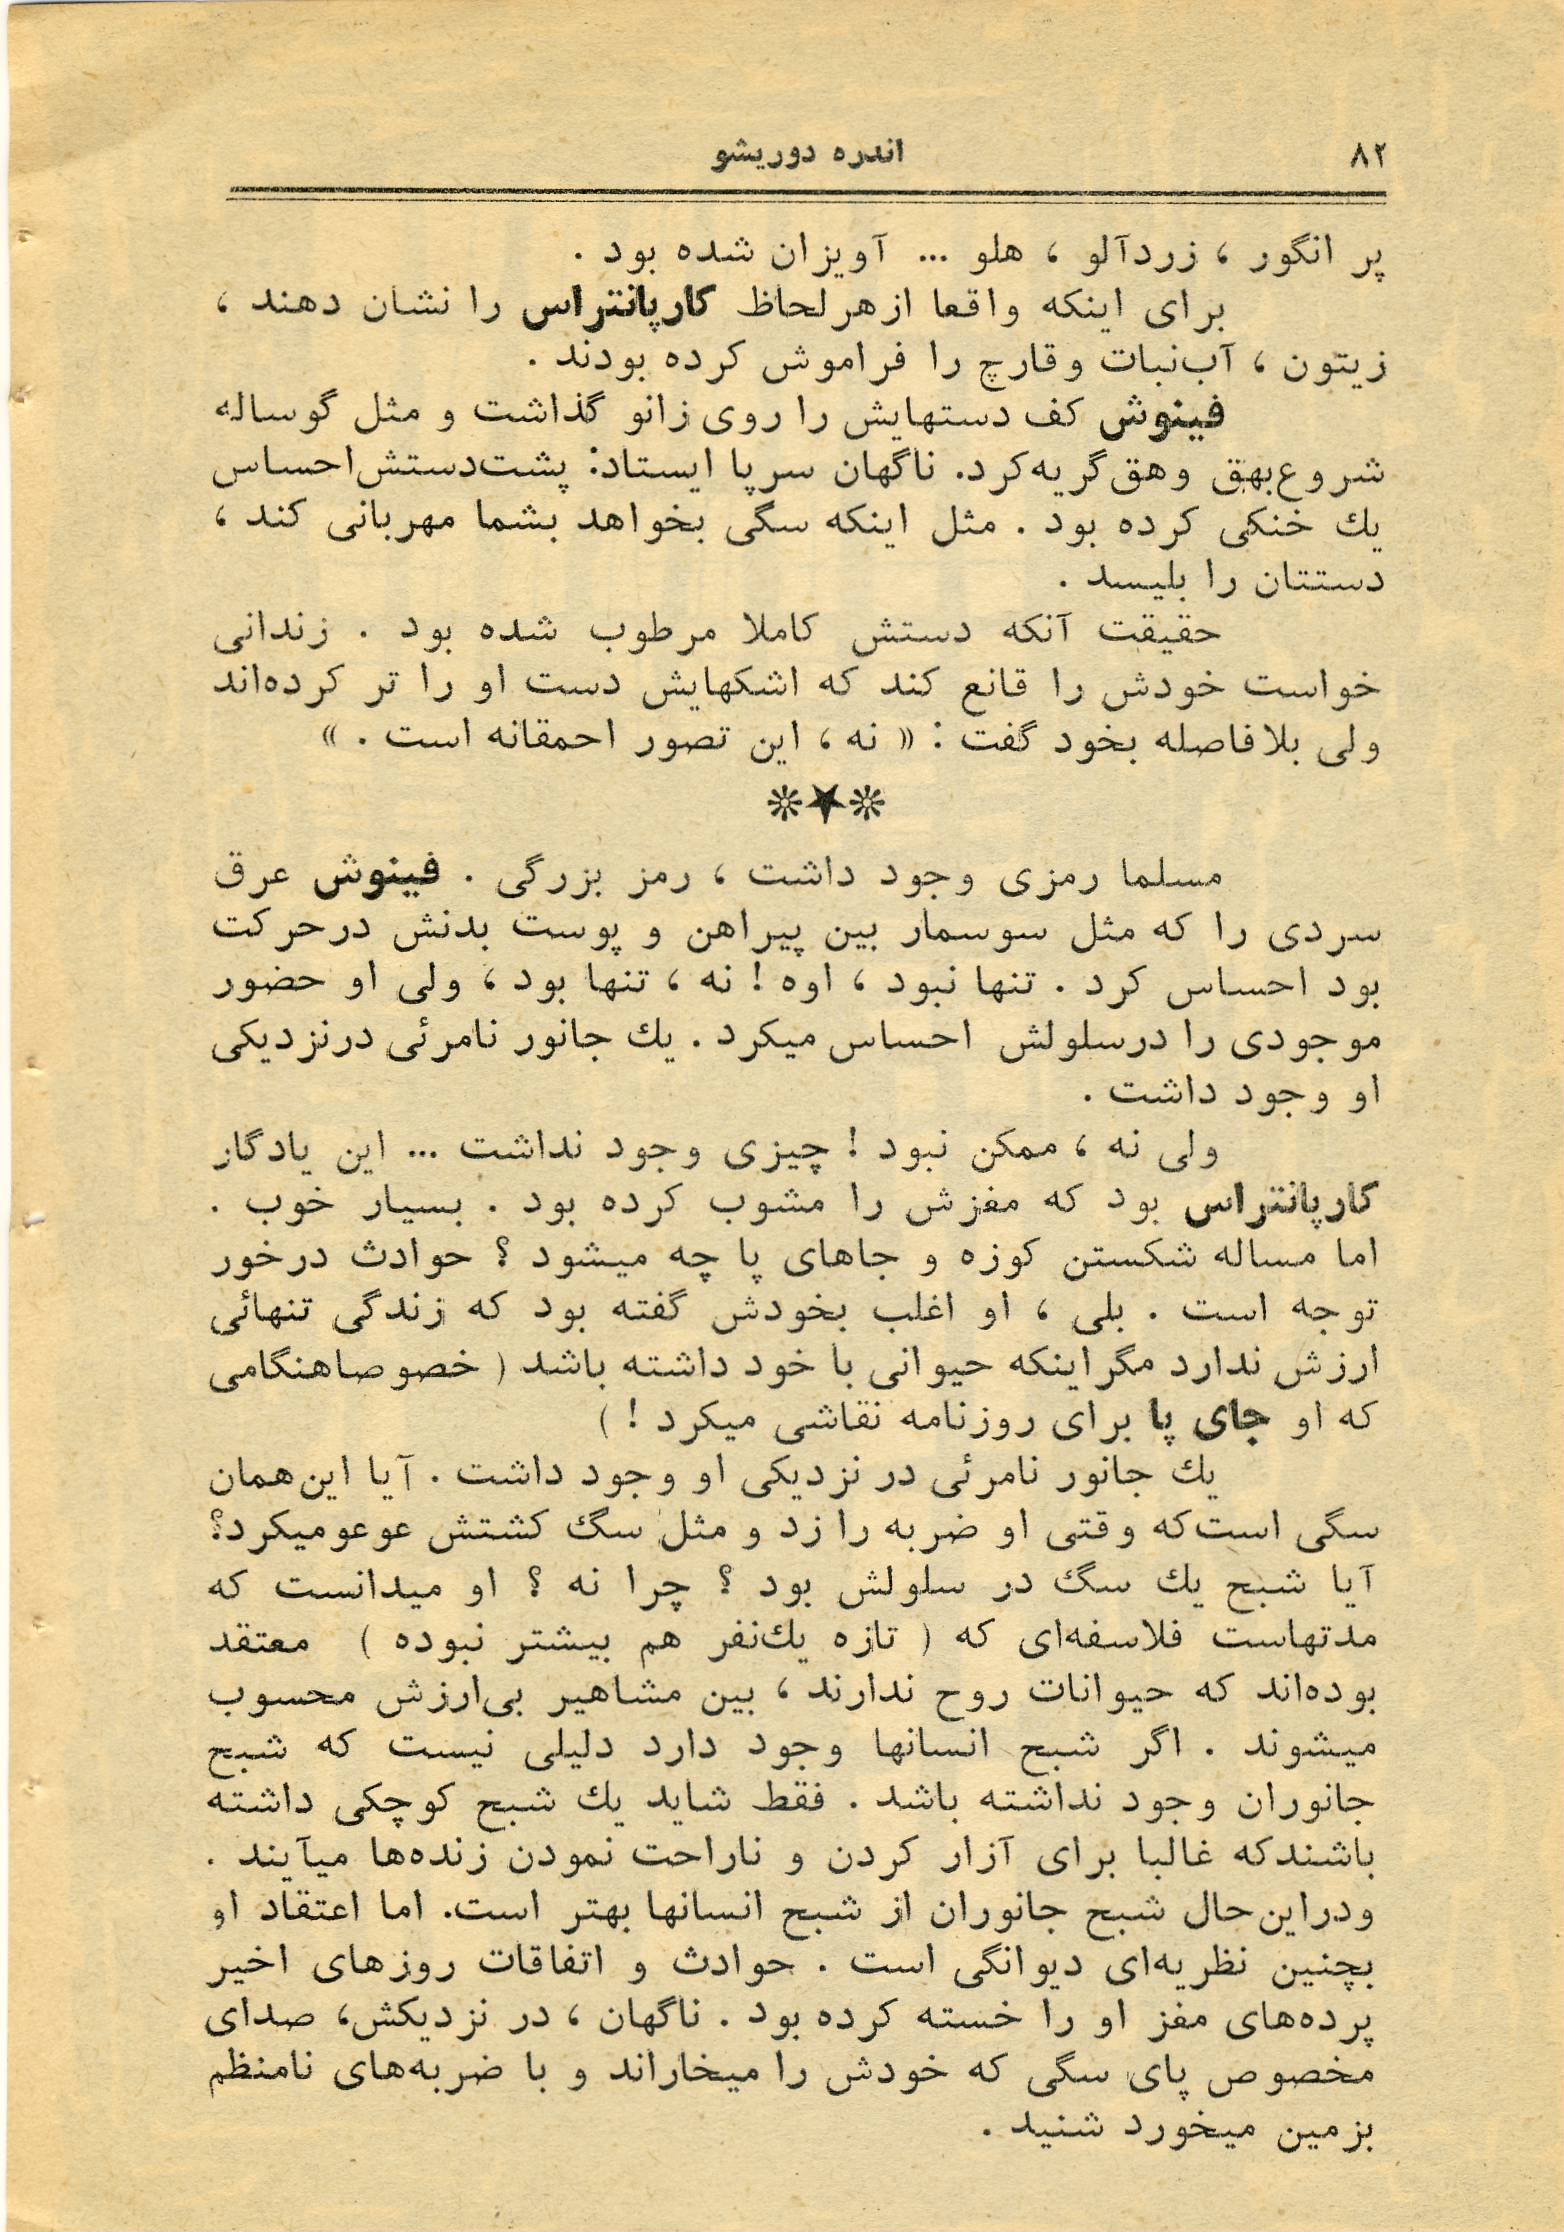 ۸۲
اندره دوریشو
پر انگور ، زردآلو ، هلو ... آویزان شده بود .
برای اینکه واقعا ازهرلحاظ کارپانتراس را نشان دهند ،
زیتون ، آب‌نبات وقارچ را فراموش کرده بودند .
فینوش کف دستهایش را روی زانو گذاشت و مثل گوساله
شروع‌بهق وهق‌گریه‌کرد. ناگهان سرپا ایستاد: پشت‌دستش‌احساس
یك خنکی کرده بود . مثل اینکه سگی بخواهد بشما مهربانی کند ،
دستتان را بلیسد .
حقیقت آنکه دستش کاملا مرطوب شده بود . زندانی
خواست خودش را قانع کند که اشکهایش دست او را تر کرده‌اند
ولی بلافاصله بخود گفت : « نه ، این تصور احمقانه است . »
❊★❊
مسلما رمزی وجود داشت ، رمز بزرگی . فینوش عرق
سردی را که مثل سوسمار بین پیراهن و پوست بدنش درحرکت
بود احساس کرد . تنها نبود ، اوه ! نه ، تنها بود ، ولی او حضور
موجودی را درسلولش احساس میکرد . یك جانور نامرئی درنزدیکی
او وجود داشت .
ولی نه ، ممکن نبود ! چیزی وجود نداشت ... این یادگار
کارپانتراس بود که مفزش را مشوب کرده بود . بسیار خوب .
اما مساله شکستن کوزه و جاهای پا چه میشود ؟ حوادث درخور
توجه است . بلی ، او اغلب بخودش گفته بود که زندگی تنهائی
ارزش ندارد مگراینکه حیوانی با خود داشته باشد ( خصوصاهنگامی
که او جای پا برای روزنامه نقاشی میکرد ! )
یك جانور نامرئی در نزدیکی او وجود داشت . آیا این‌همان
سگی است‌که وقتی او ضربه را زد و مثل سگ کشتش عوعومیکرد؟
آیا شبح یك سگ در سلولش بود ؟ چرا نه ؟ او میدانست که
مدتهاست فلاسفه‌ای که ( تازه یك‌نفر هم بیشتر نبوده ) معتقد
بوده‌اند که حیوانات روح ندارند ، بین مشاهیر بی‌ارزش محسوب
میشوند . اگر شبح انسانها وجود دارد دلیلی نیست که شبح
جانوران وجود نداشته باشد . فقط شاید یك شبح کوچکی داشته
باشندکه غالبا برای آزار کردن و ناراحت نمودن زنده‌ها میآیند .
ودراین‌حال شبح جانوران از شبح انسانها بهتر است. اما اعتقاد او
بچنین نظریه‌ای دیوانگی است . حوادث و اتفاقات روزهای اخیر
پرده‌های مفز او را خسته کرده بود . ناگهان ، در نزدیکش، صدای
مخصوص پای سگی که خودش را میخاراند و با ضربه‌های نامنظم
بزمین میخورد شنید .